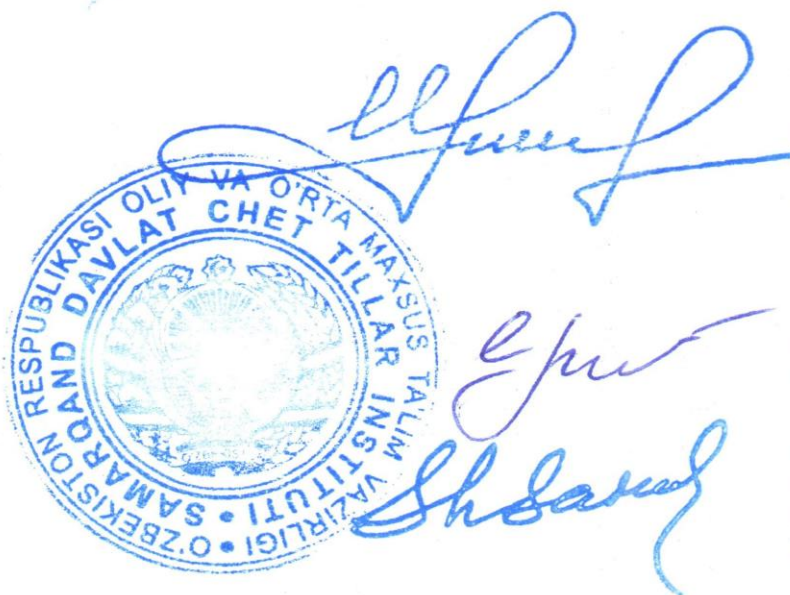 O'ZBEKISTON RESPUBLIKASI OLIY VA O'RTA MAXSUS TA'LIM VAZIRLIGI •
SAMARQAND DAVLAT CHET TILLAR INSTITUTI •